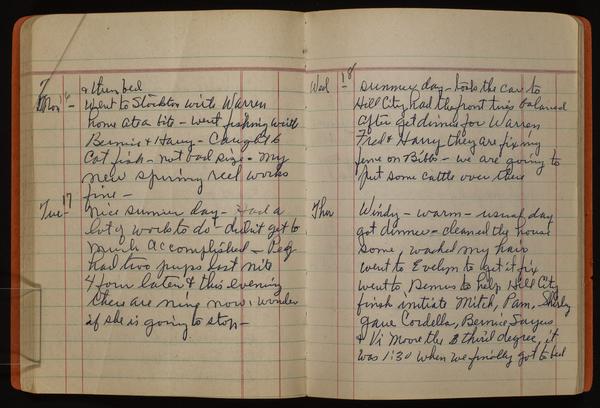 & then bed
Mon 16 - Went to Stockton with Warren
home ate a bite - went fishing with
Bernice & Harry - Caught 6
Cat fish - not bad size - my
new spinning reel works
fine -
Tue 17 - Nice summer day - Had a
lot of work to do - didn't get to
much accomplished - Peg
had two pups last nite
4 four later & this evening
there are nine now, wonder
if she is going to stop -
Wed 18 - Summer day - took the car to
Hill City, had the front tires balanced
after get dinner for Warren
Fred & Harry they are fixing
fence on Bibbs - we are going to
put some cattle over there
Thur Windy - warm - usual day
got dinner - cleaned the house
some, washed my hair
went to Evelyn to get it fix
went to Damar to help Hill City
finish initiate Mitch, Pam, Shirley
gave Cordella, Bernice
& Vi Moore the 3 third degree, it
was 1:30 when we finally got to bed